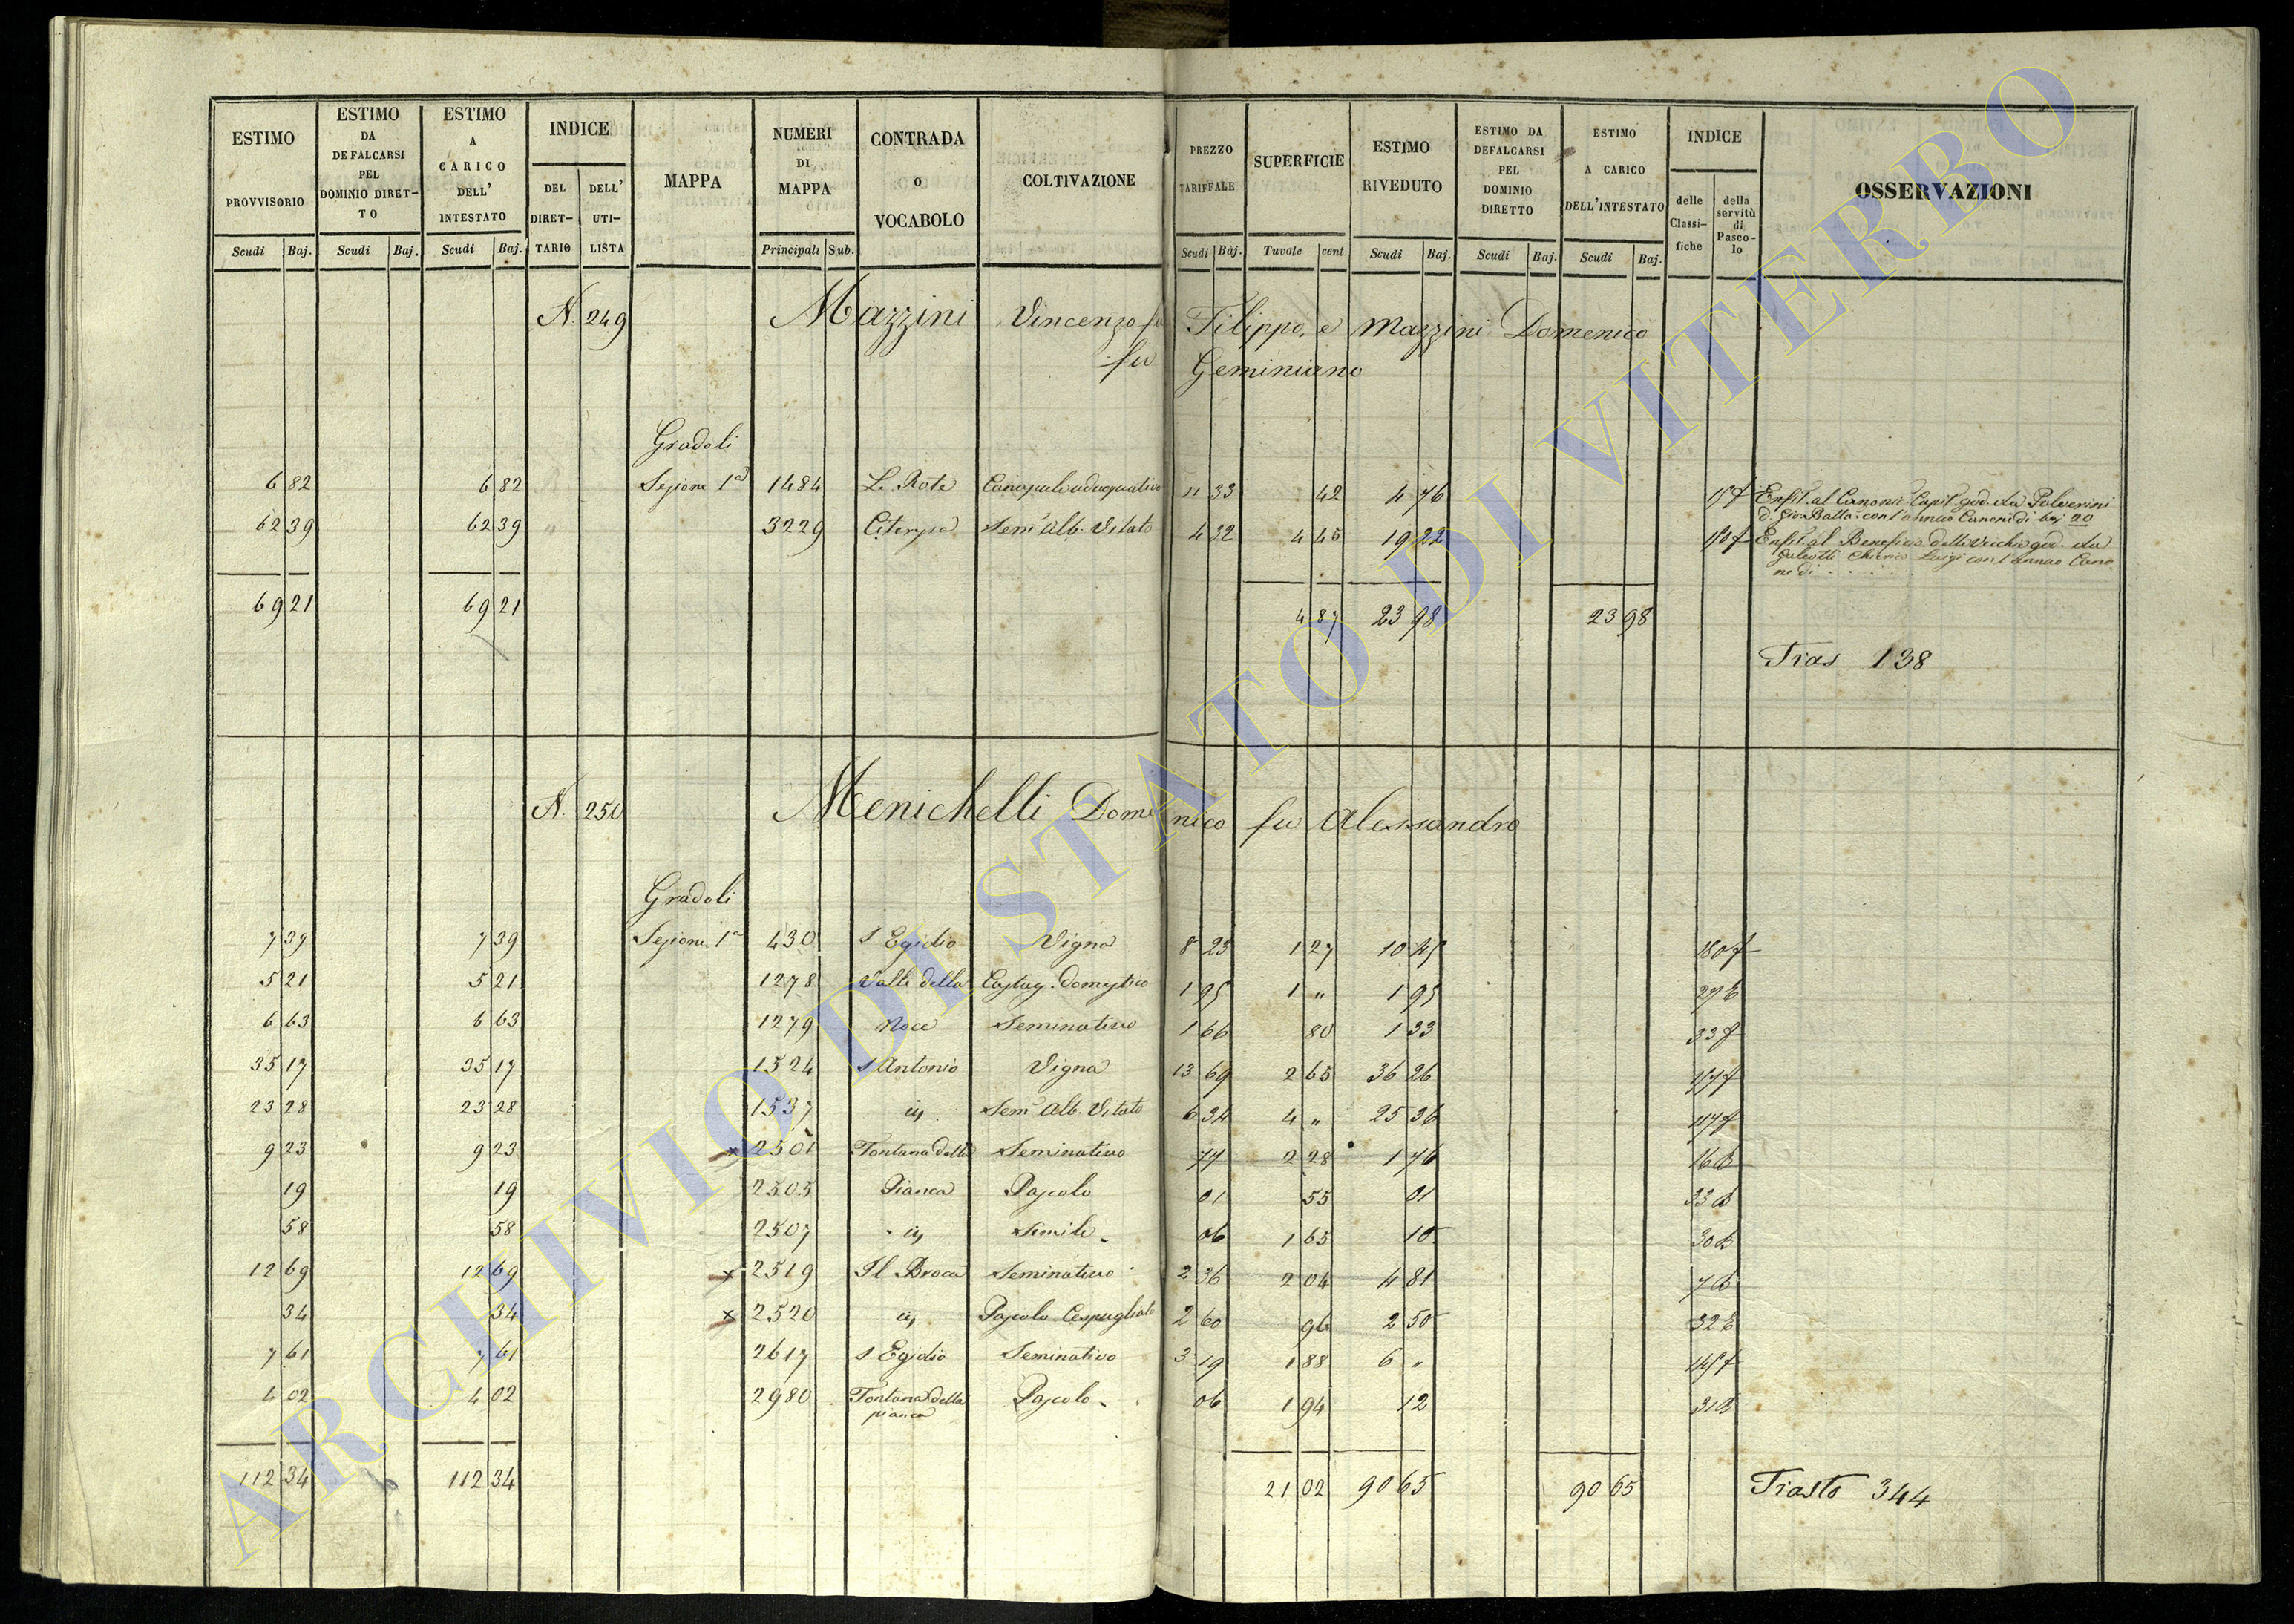 ESTIMO PROVVISORIO | ESTIMO DA DEFALCARSI PEL DOMINIO DIRETTO | ESTIMO A CARICO DELL' INTESTATO | INDICE DEL DIRETTARIO | DELL' UTILISTA | MAPPA | NUMERI DI MAPPA | CONTRADA O VOCABOLO | COLTIVAZIONE | PREZZO TARIFFALE | SUPERFICIE | ESTIMO RIVEDUTO | ESTIMO DA DEFALCARSI PEL DOMINIO DIRETTO | ESTIMO A CARICO DELL'INTESTATO | INDICE delle Classifiche | della servitù di Pascolo | OSSERVAZIONI
Scudi | Baj. | Scudi | Baj. | Scudi | Baj. | Principali | Sub. | Scudi | Baj. | Tavole | cent. | Scudi | Baj. | Scudi | Baj. | Scudi | Baj.
N. 249 Mazzini Vincenzo fu Filippo, e Mazzini Domenico
fu Geminiano
Gradoli
6 82 | 6 82 | Sezione 1a | 1484 | Le Rote | Canapule adacquativo | 11 33 | 42 | 4 76 | Enfit. al Canonic. Capit. god. da Polverini
d. Gio. Batta. con l'annuo Canone di baj 20
62 39 | 62 39 | 3229 | Citerpa | Sem. Alb. Vitato | 4 32 | 4 45 | 19 22 | Enfit. al Beneficio della Vecchia god. da
Galeotti Chierico Luigi con l'annuo Cano
ne di . . . .
69 21 | 69 21 | 4 87 | 23 98 | 23 98
Tias 138
N. 250 Menichelli Domenico fu Alessandro
Gradoli
7 39 | 7 39 | Sezione 1a | 430 | S Egidio | Vigna | 8 23 | 1 27 | 10 45
5 21 | 5 21 | 1278 | Valle della | Castag. Domestico | 1 95 | 1 " | 1 95 | 27 E
6 63 | 6 63 | 1279 | Noce | Seminativo | 1 66 | 80 | 1 33 | 33 f
35 17 | 35 17 | 1524 | S Antonio | Vigna | 13 69 | 2 65 | 36 26
23 28 | 23 28 | 1537 | id | Sem. Alb. Vitato | 6 34 | 4 " | 25 36
9 23 | 9 23 | x 2501 | Fontana della | Seminativo | 77 | 2 28 | 1 76 | 16 B
19 | 19 | 2505 | Pianca | Pascolo | 01 | 55 | 01 | 33 B
58 | 58 | 2507 | id | Simile | 06 | 1 65 | 10 | 30 B
12 69 | 12 69 | x 2519 | Il Broca | Seminativo | 2 36 | 2 04 | 4 81 | 7 B
34 | 34 | x 2520 | id | Pascolo Cespugliato | 2 60 | 96 | 2 50 | 32 E
7 61 | 7 61 | 2617 | S Egidio | Seminativo | 3 19 | 1 88 | 6 "
4 02 | 4 02 | 2980 | Fontana della | Pascolo | 06 | 1 94 | 12 | 31 B
pianca
112 34 | 112 34 | 21 02 | 90 65 | 90 65 | Tiasto 344
ARCHIVIO DI STATO DI VITERBO